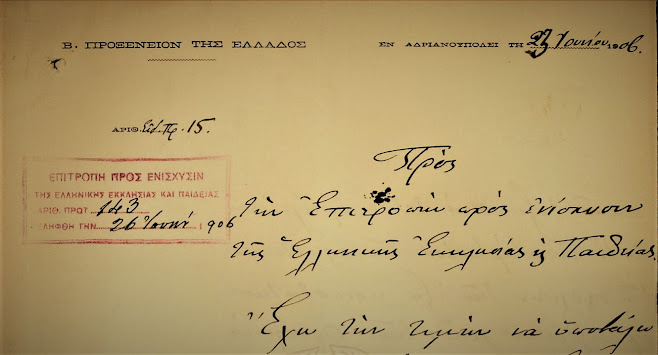 Β. ΠΡΟΞΕΝΕΙΟΝ ΤΗΣ ΕΛΛΑΔΟΣ
ΕΝ ΑΔΡΙΑΝΟΥΠΟΛΕΙ ΤΗ 23 Ἰουνίου 1906.
ΑΡΙΘ. Ἐμ. Πρ. 15.
ΕΠΙΤΡΟΠΗ ΠΡΟΣ ΕΝΙΣΧΥΣΙΝ
ΤΗΣ ΕΛΛΗΝΙΚΗΣ ΕΚΚΛΗΣΙΑΣ ΚΑΙ ΠΑΙΔΕΙΑΣ
ΑΡΙΘ. ΠΡΩΤ. 143
ΕΛΗΦΘΗ ΤΗΝ 26 Ἰουνί 1906
Πρὸς
τὴν Ἐπιτροπὴν πρὸς ἐνίσχυσιν
τῆς Ἑλληνικῆς Ἐκκλησίας ϗ Παιδείας.
Ἔχω τὴν τιμὴν νὰ ὑποβάλω